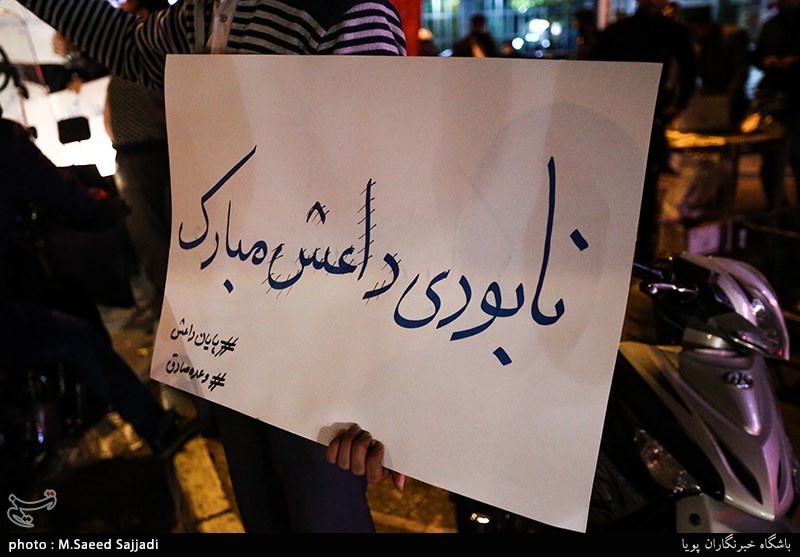 نابودی داعش مبارک
#پایان داعش
#وعده صادق
تسنیم
photo : M.Saeed Sajjadi
باشگاه خبرنگاران پویا